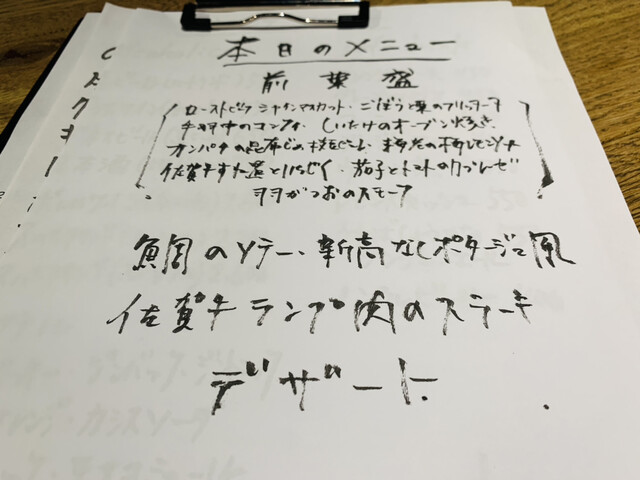 本日のメニュー
前菜盛
ローストビーフ シャインマスカット・ごぼう栗のフリッタータ
手羽中のコンフィ、しいたけのオーブン焼き、
カンパチの昆布じめ
佐賀牛すね煮といちじく、茄子とトマトのカプレーゼ
ヨコがつおのスモーク
鯛のソテー、新高なしポタージュ風
佐賀牛ランプ肉のステーキ
デザート